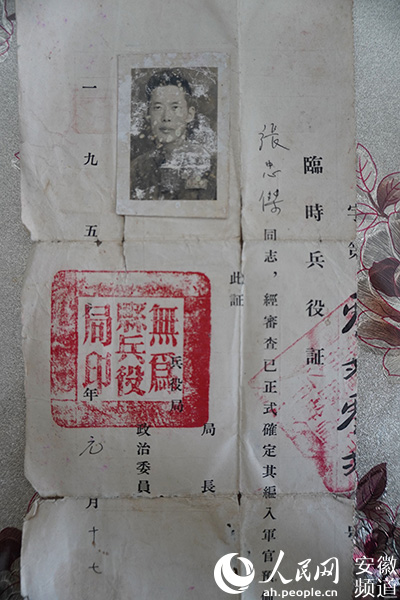 臨時兵役証
張忠傑同志，經審查已正式確定其編入軍官預
此証
兵役局
局長
政治委員
一九五
年元月十七
無爲
縣兵役
局印
人民网 安徽频道
ah.people.cn